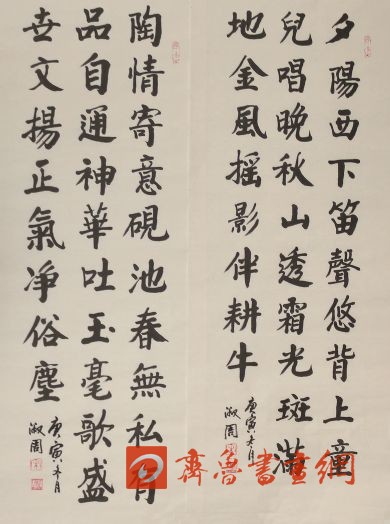 夕陽西下笛聲悠背上童
兒唱晚秋山透霜光斑滿
地金風摇影伴耕牛
庚寅冬月
淑周
陶情寄意硯池春無私有
品自通神華吐玉毫歌盛
世文揚正氣净俗塵
庚寅冬月
淑周
齊魯書畫網